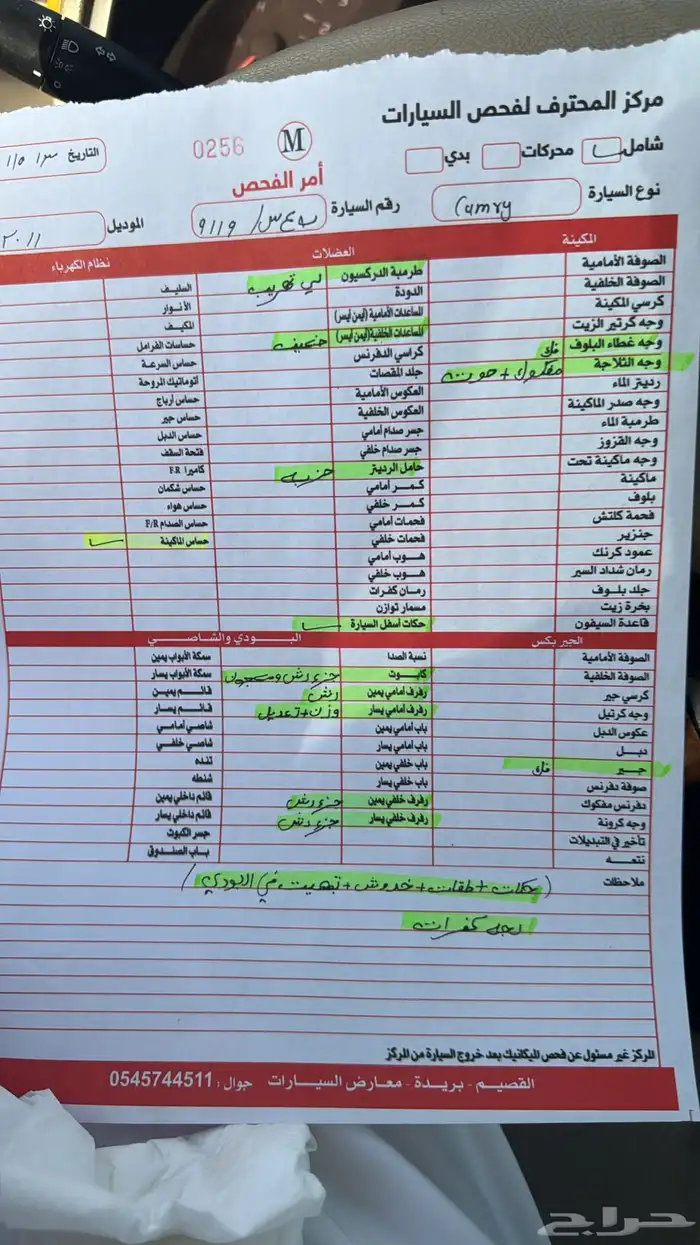 مركز المحترف لفحص السيارات
شامل محركات بدي
M
0256
أمر الفحص
التاريخ
نوع السيارة Camry رقم السيارة ٩١١٩ الموديل ٢٠١١
المكينة العضلات نظام الكهرباء
الصوفة الأمامية طرمبة الدركسيون لي تهريب السليف
الصوفة الخلفية الدودة الأنوار
كرسي المكينة المساعدات الأمامية (أيمن أيسر) المكيف
وجه كرتير الزيت المساعدات الخلفية (أيمن أيسر) ضعيف حساسات الفرامل
وجه غطاء البلوف فك كراسي الدفرنس حساس السرعة
وجه الثلاجة مفكوك + جلد المقصات أتوماتيك المروحة
رديتر الماء العكوس الأمامية حساس أرباج
وجه صدر الماكينة العكوس الخلفية حساس جير
طرمبة الماء جسر صدام أمامي حساس الدبل
وجه القزوز جسر صدام خلفي فتحة السقف
وجه ماكينة تحت حامل الرديتر ضربه كاميرا F.R
ماكينة كمر أمامي حساس شكمان
بلوف كمر خلفي حساس هواء
فحمة كلتش فحمات أمامي حساس الصدام F/R
جنزير فحمات خلفي حساس الماكينة
عمود كرنك هوب أمامي
رمان شداد السير هوب خلفي
جلد بلوف رمان كفرات
بخرة زيت مسمار توازن
قاعدة السيفون حكات أسفل السيارة
الجير بكس البودي والشاصي
الصوفة الأمامية نسبة الصدا سمكة الأبواب يمين
الصوفة الخلفية كابوت جزء رش ومسحوب سمكة الأبواب يسار
كرسي جير رفرف أمامي يمين رش قائم يمين
وجه كرتيل رفرف أمامي يسار وزن + تعديل قائم يسار
عكوس الدبل باب أمامي يمين شاصي أمامي
دبل باب أمامي يسار شاصي خلفي
جير فك باب خلفي يمين تنده
صوفة دفرنس باب خلفي يسار شنطه
دفرنس مفكوك رفرف خلفي يمين جزء رش قائم داخلي يمين
وجه كرونة رفرف خلفي يسار جزء رش قائم داخلي يسار
تأخير في التبديلات جسر الكبوت
نتعه باب الصندوق
ملاحظات (حكات + طقات + خدوش + تبهيت في البودي)
كفرات
المركز غير مسئول عن فحص الميكانيك بعد خروج السيارة من المركز
القصيم - بريدة - معارض السيارات جوال : 0545744511
حراج